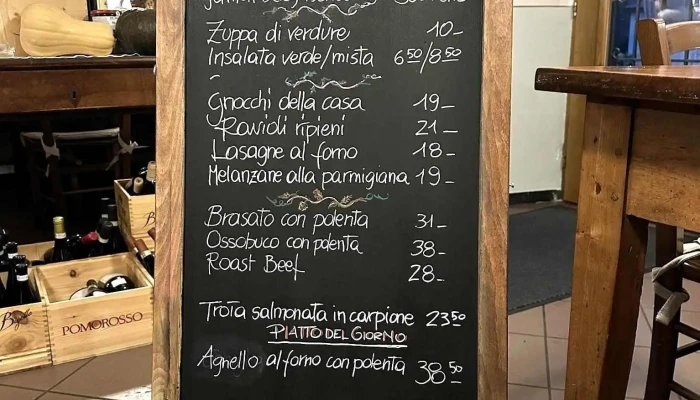 Zuppa di verdure 10-
Insalata verde/mista 6 50/8 50
Gnocchi della casa 19-
Ravioli ripieni 21-
Lasagne al forno 18-
Melanzane alla parmigiana 19-
Brasato con polenta 31-
Ossobuco con polenta 38-
Roast Beef 28-
Trota salmonata in carpione 23 50
PIATTO DEL GIORNO
Agnello al forno con polenta 38 50
POMOROSSO